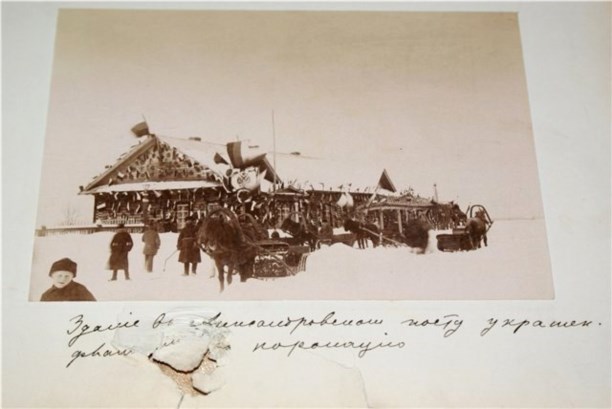 Зданіе въ Александровскомъ посту украшен.
коронацію